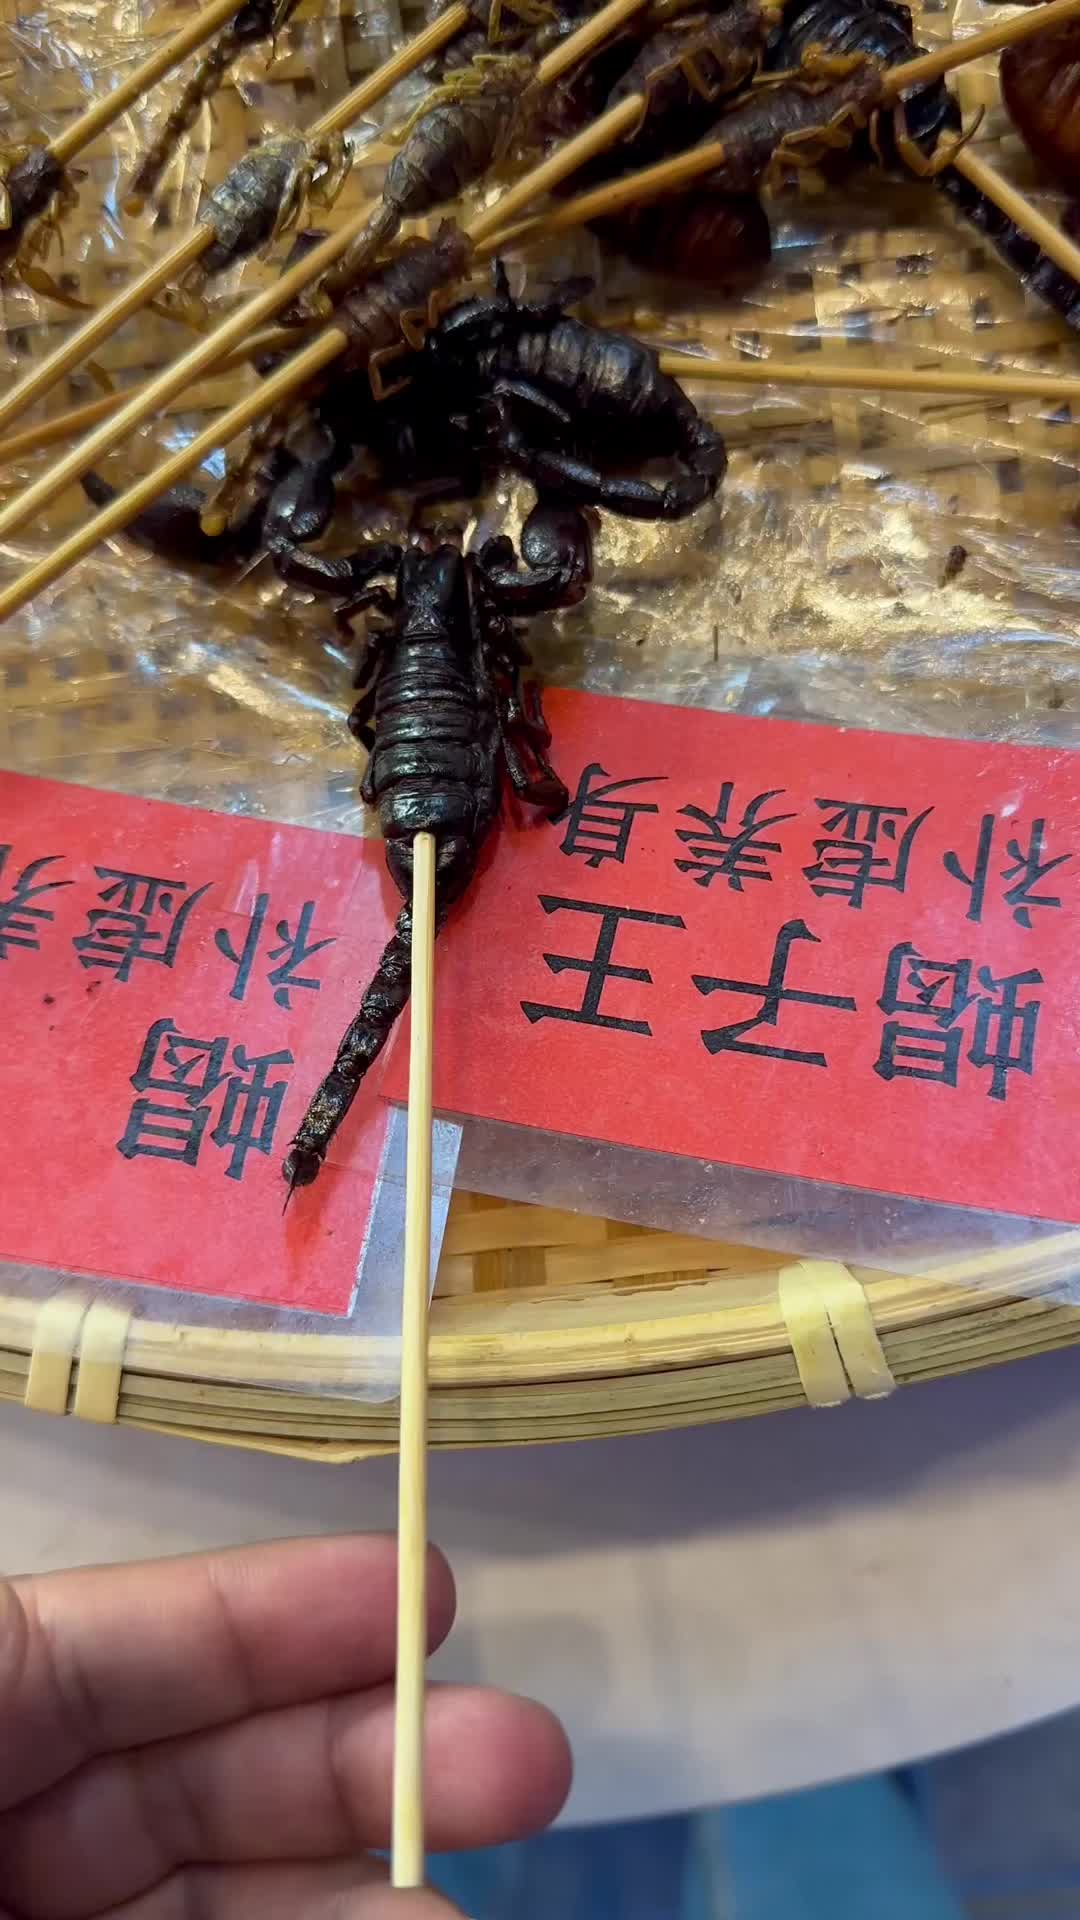 蝎子王
补虚养身
蝎
补虚养